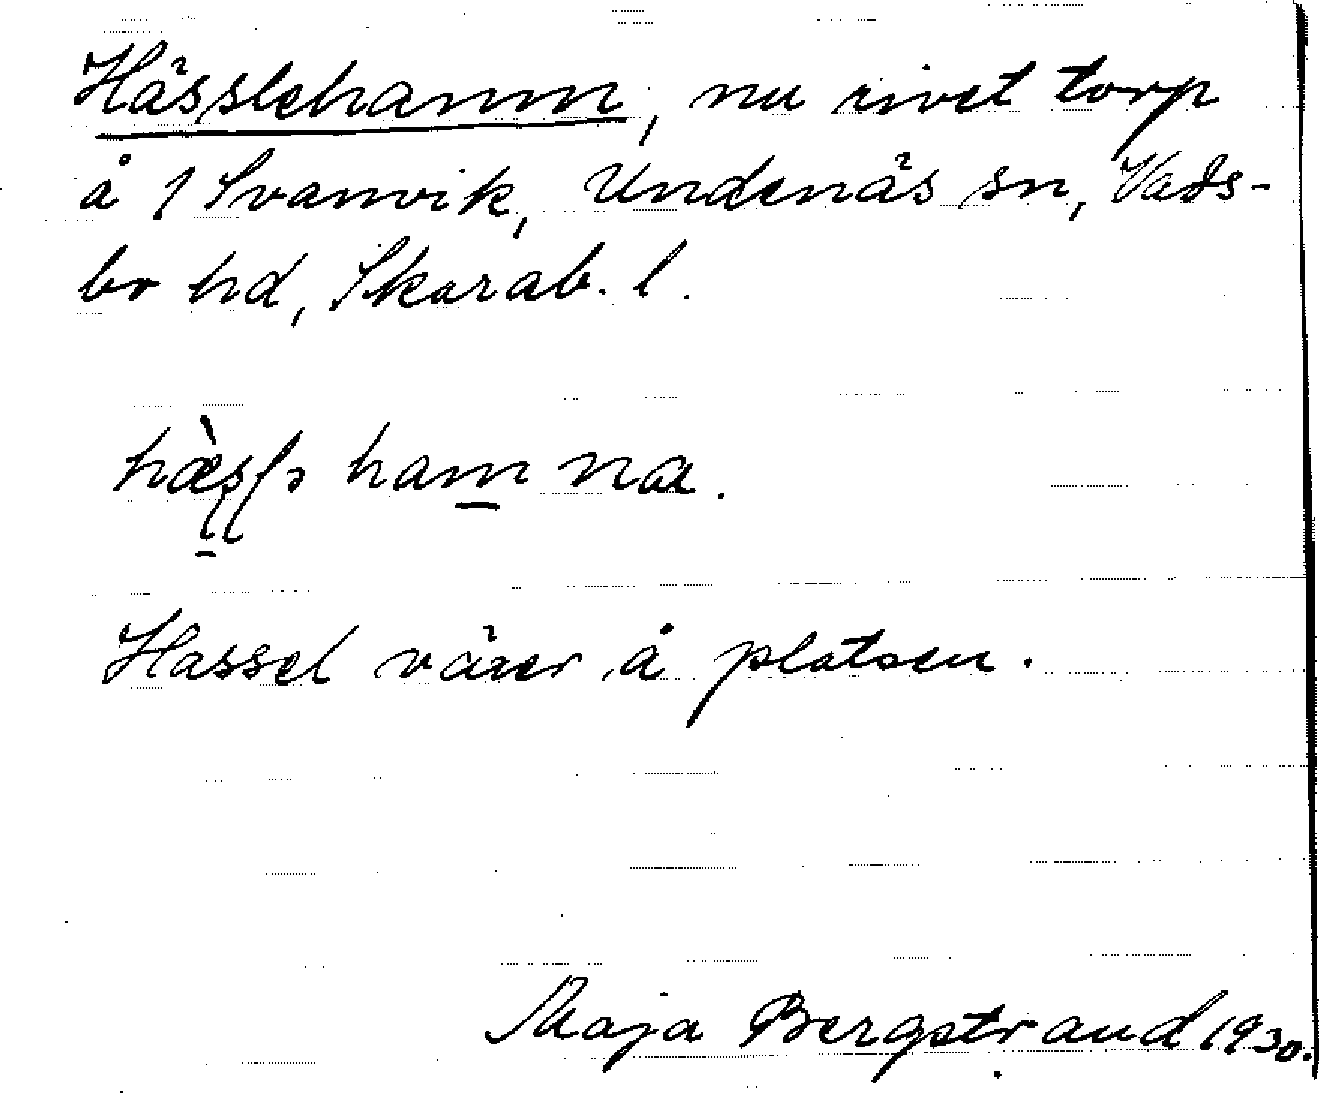 Hässlehamn, nu rivet torp
å 1 Svanvik, Undenäs sn, Vads-
bo hd, Skarab. l.
hamna.
Hassel växer å platsen.
Maja Bergstrand 1930.